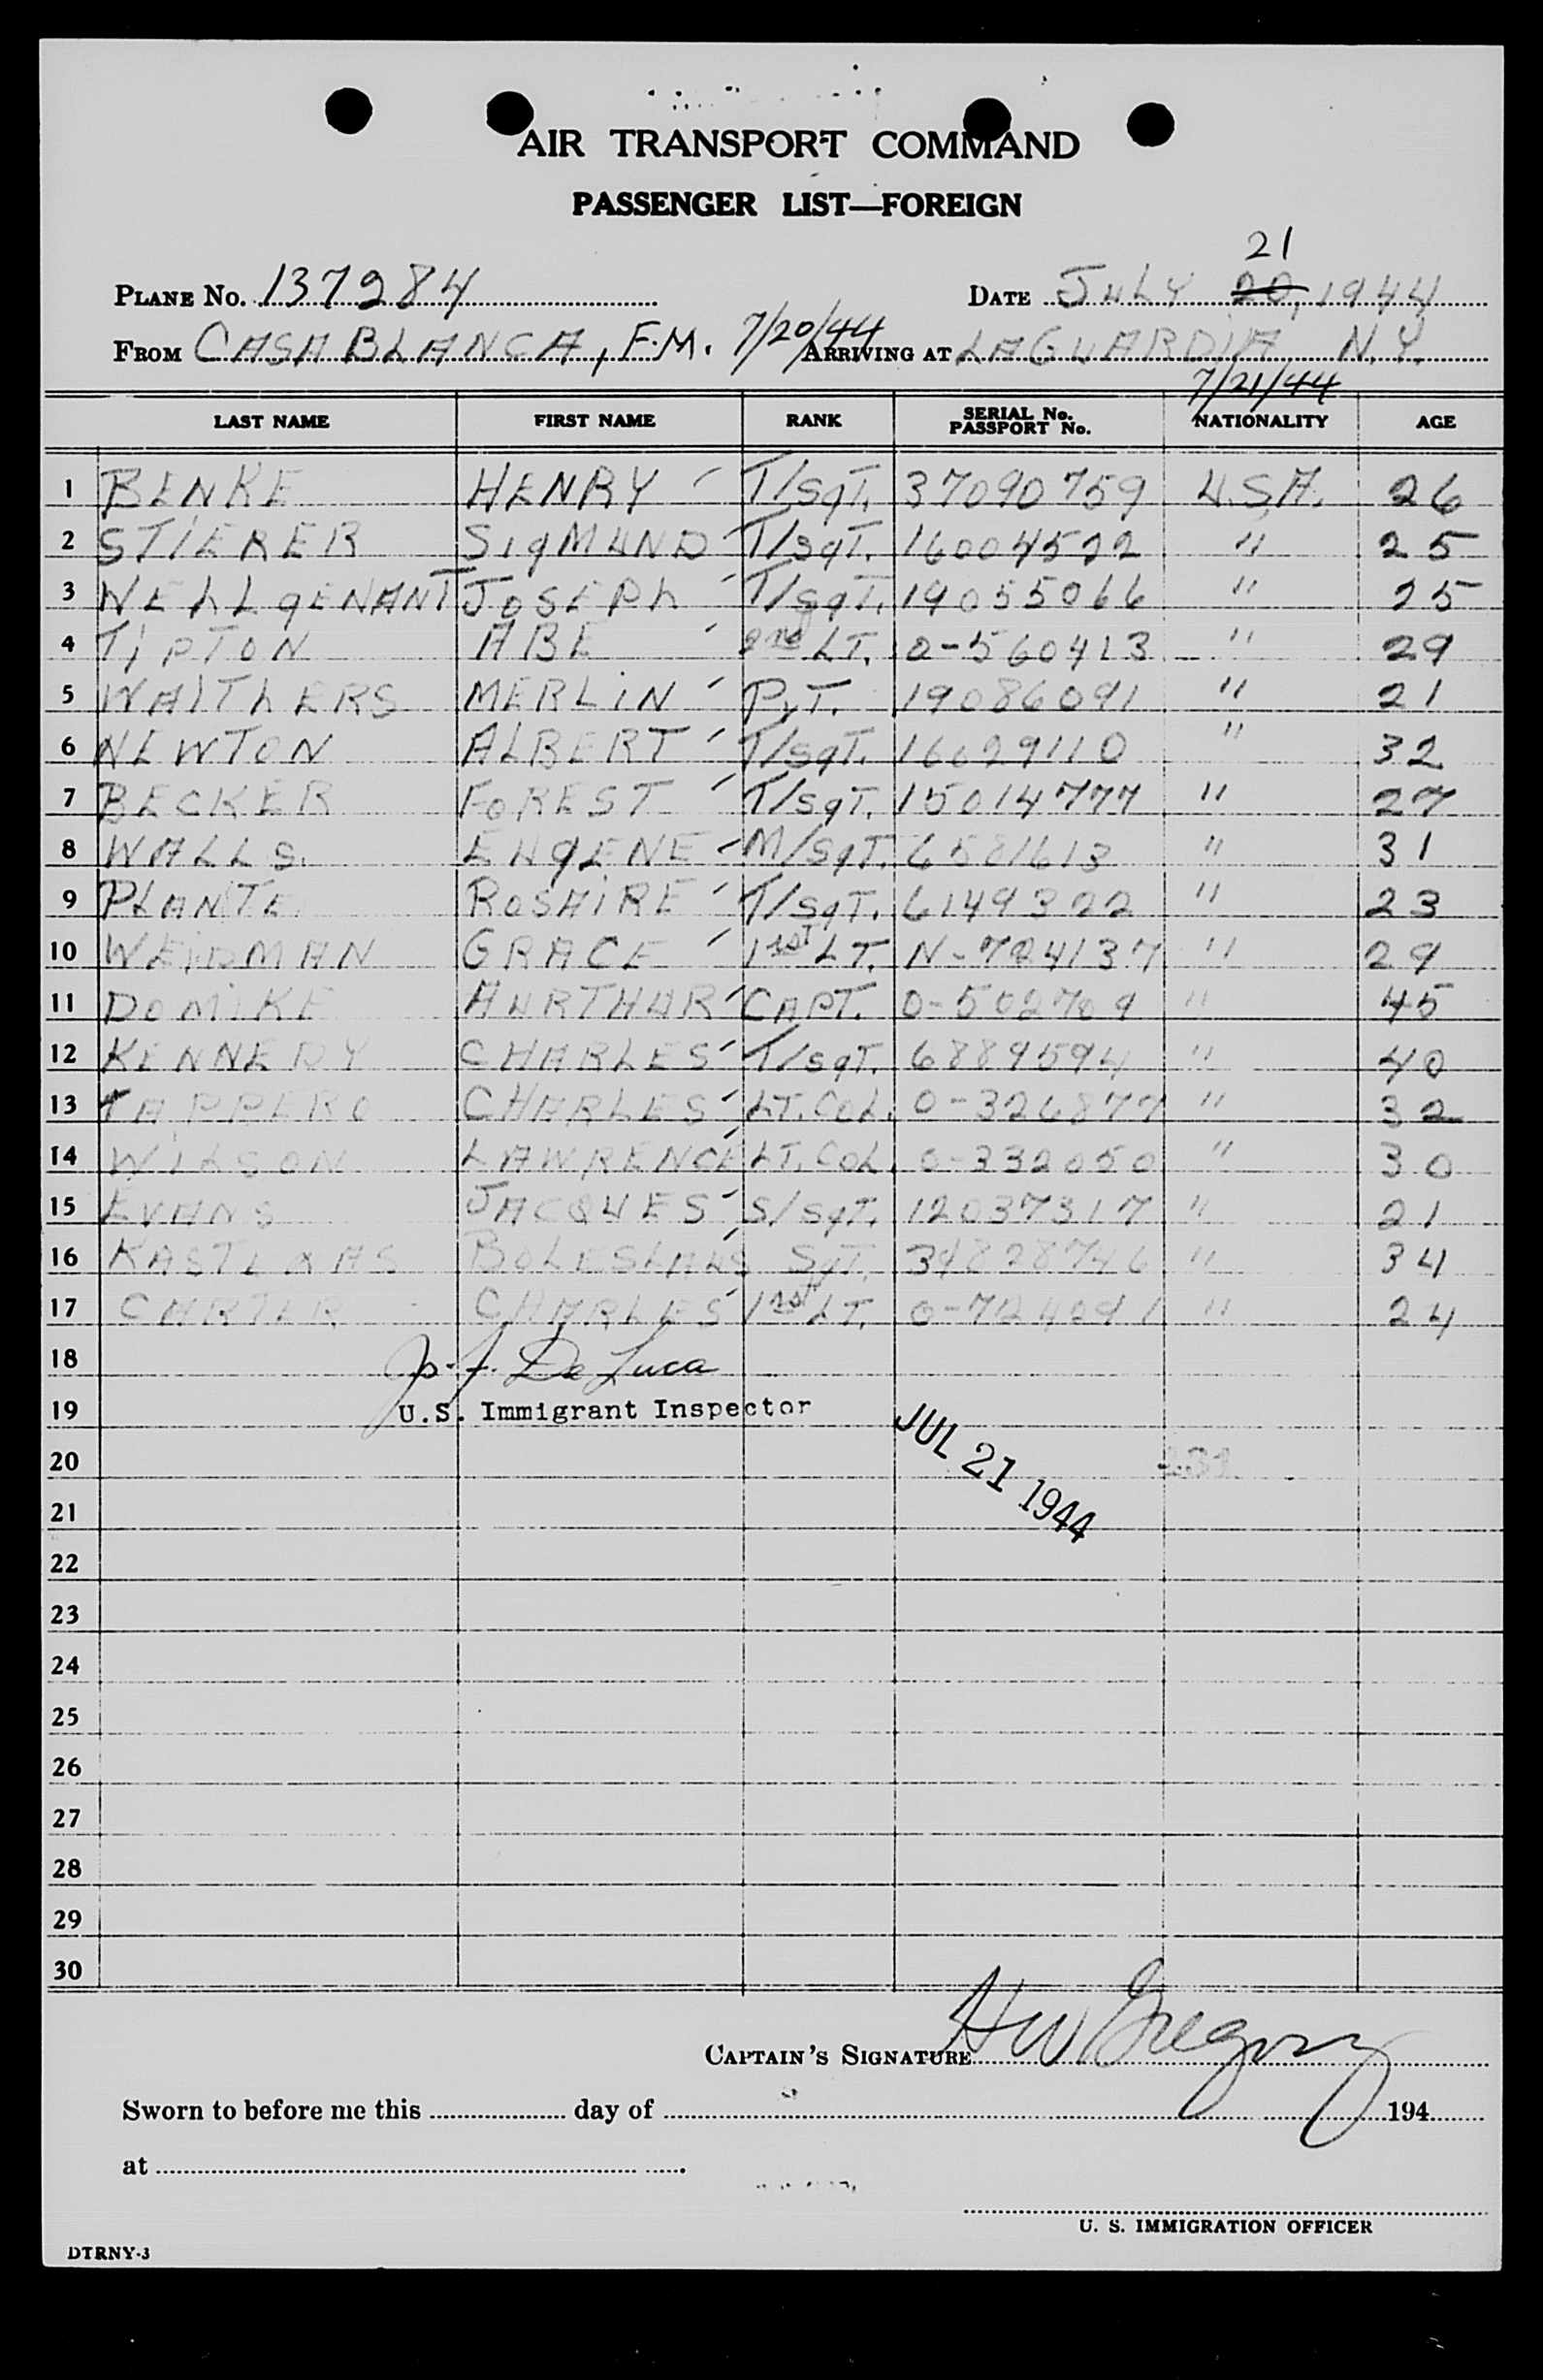 AIR TRANSPORT COMMAND
PASSENGER LIST—FOREIGN
21
PLANE No. 137284 DATE JULY 20, 1944
FROM CASABLANCA, F.M. 7/20/44 ARRIVING AT LAGUARDIA N.Y.
7/21/44
LAST NAME FIRST NAME RANK SERIAL No. PASSPORT No. NATIONALITY AGE
1 BENKE HENRY T/SgT. 37090759 U.S.A. 26
2 STIERER SIgMUND T/SgT. 16004522 " 25
3 WELLgENANT JOSEPh T/SgT. 19055066 " 25
4 TIPTON ABE 2nd LT. O-560413 " 29
5 WAITHERS MERLIN PVT. 19086091 " 21
6 NEWTON ALBERT T/SgT. 16029110 " 32
7 BECKER FOREST T/SgT. 15014777 " 27
8 WALLS. EUgENE M/SgT. 6581613 " 31
9 PLANTE ROSAIRE T/SgT. 6149322 " 23
10 WEIDMAN GRACE 1st LT. N-724137 " 29
11 DOMIKE AURTHUR CAPT. O-502709 " 45
12 KENNEDY CHARLES T/SgT. 6889594 " 40
13 TAPPERO CHARLES LT. COL. O-326877 " 32
14 WILSON LAWRENCE LT. COL. O-332050 " 30
15 EVANS JACQUES S/SgT. 12037317 " 21
16 BOLESLAUS SgT. 34828746 " 34
17 CARTER CHARLES 1st LT. O-724291 " 24
18 De Luca
19 U.S. Immigrant Inspector
JUL 21 1944
20
21
22
23
24
25
26
27
28
29
30
CAPTAIN'S SIGNATURE HW Gregory
Sworn to before me this day of 194
at
U. S. IMMIGRATION OFFICER
DTRNY-3